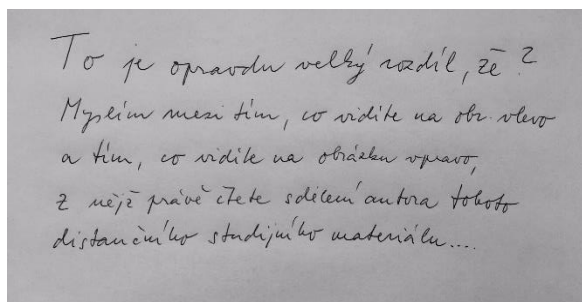 To je opravdu velký rozdíl, že?
Myslím mezi tím, co vidíte na obr. vlevo
a tím, co vidíte na obrázku vpravo,
z nějž právě čtete sdělení autora tohoto
distančního studijního materiálu....